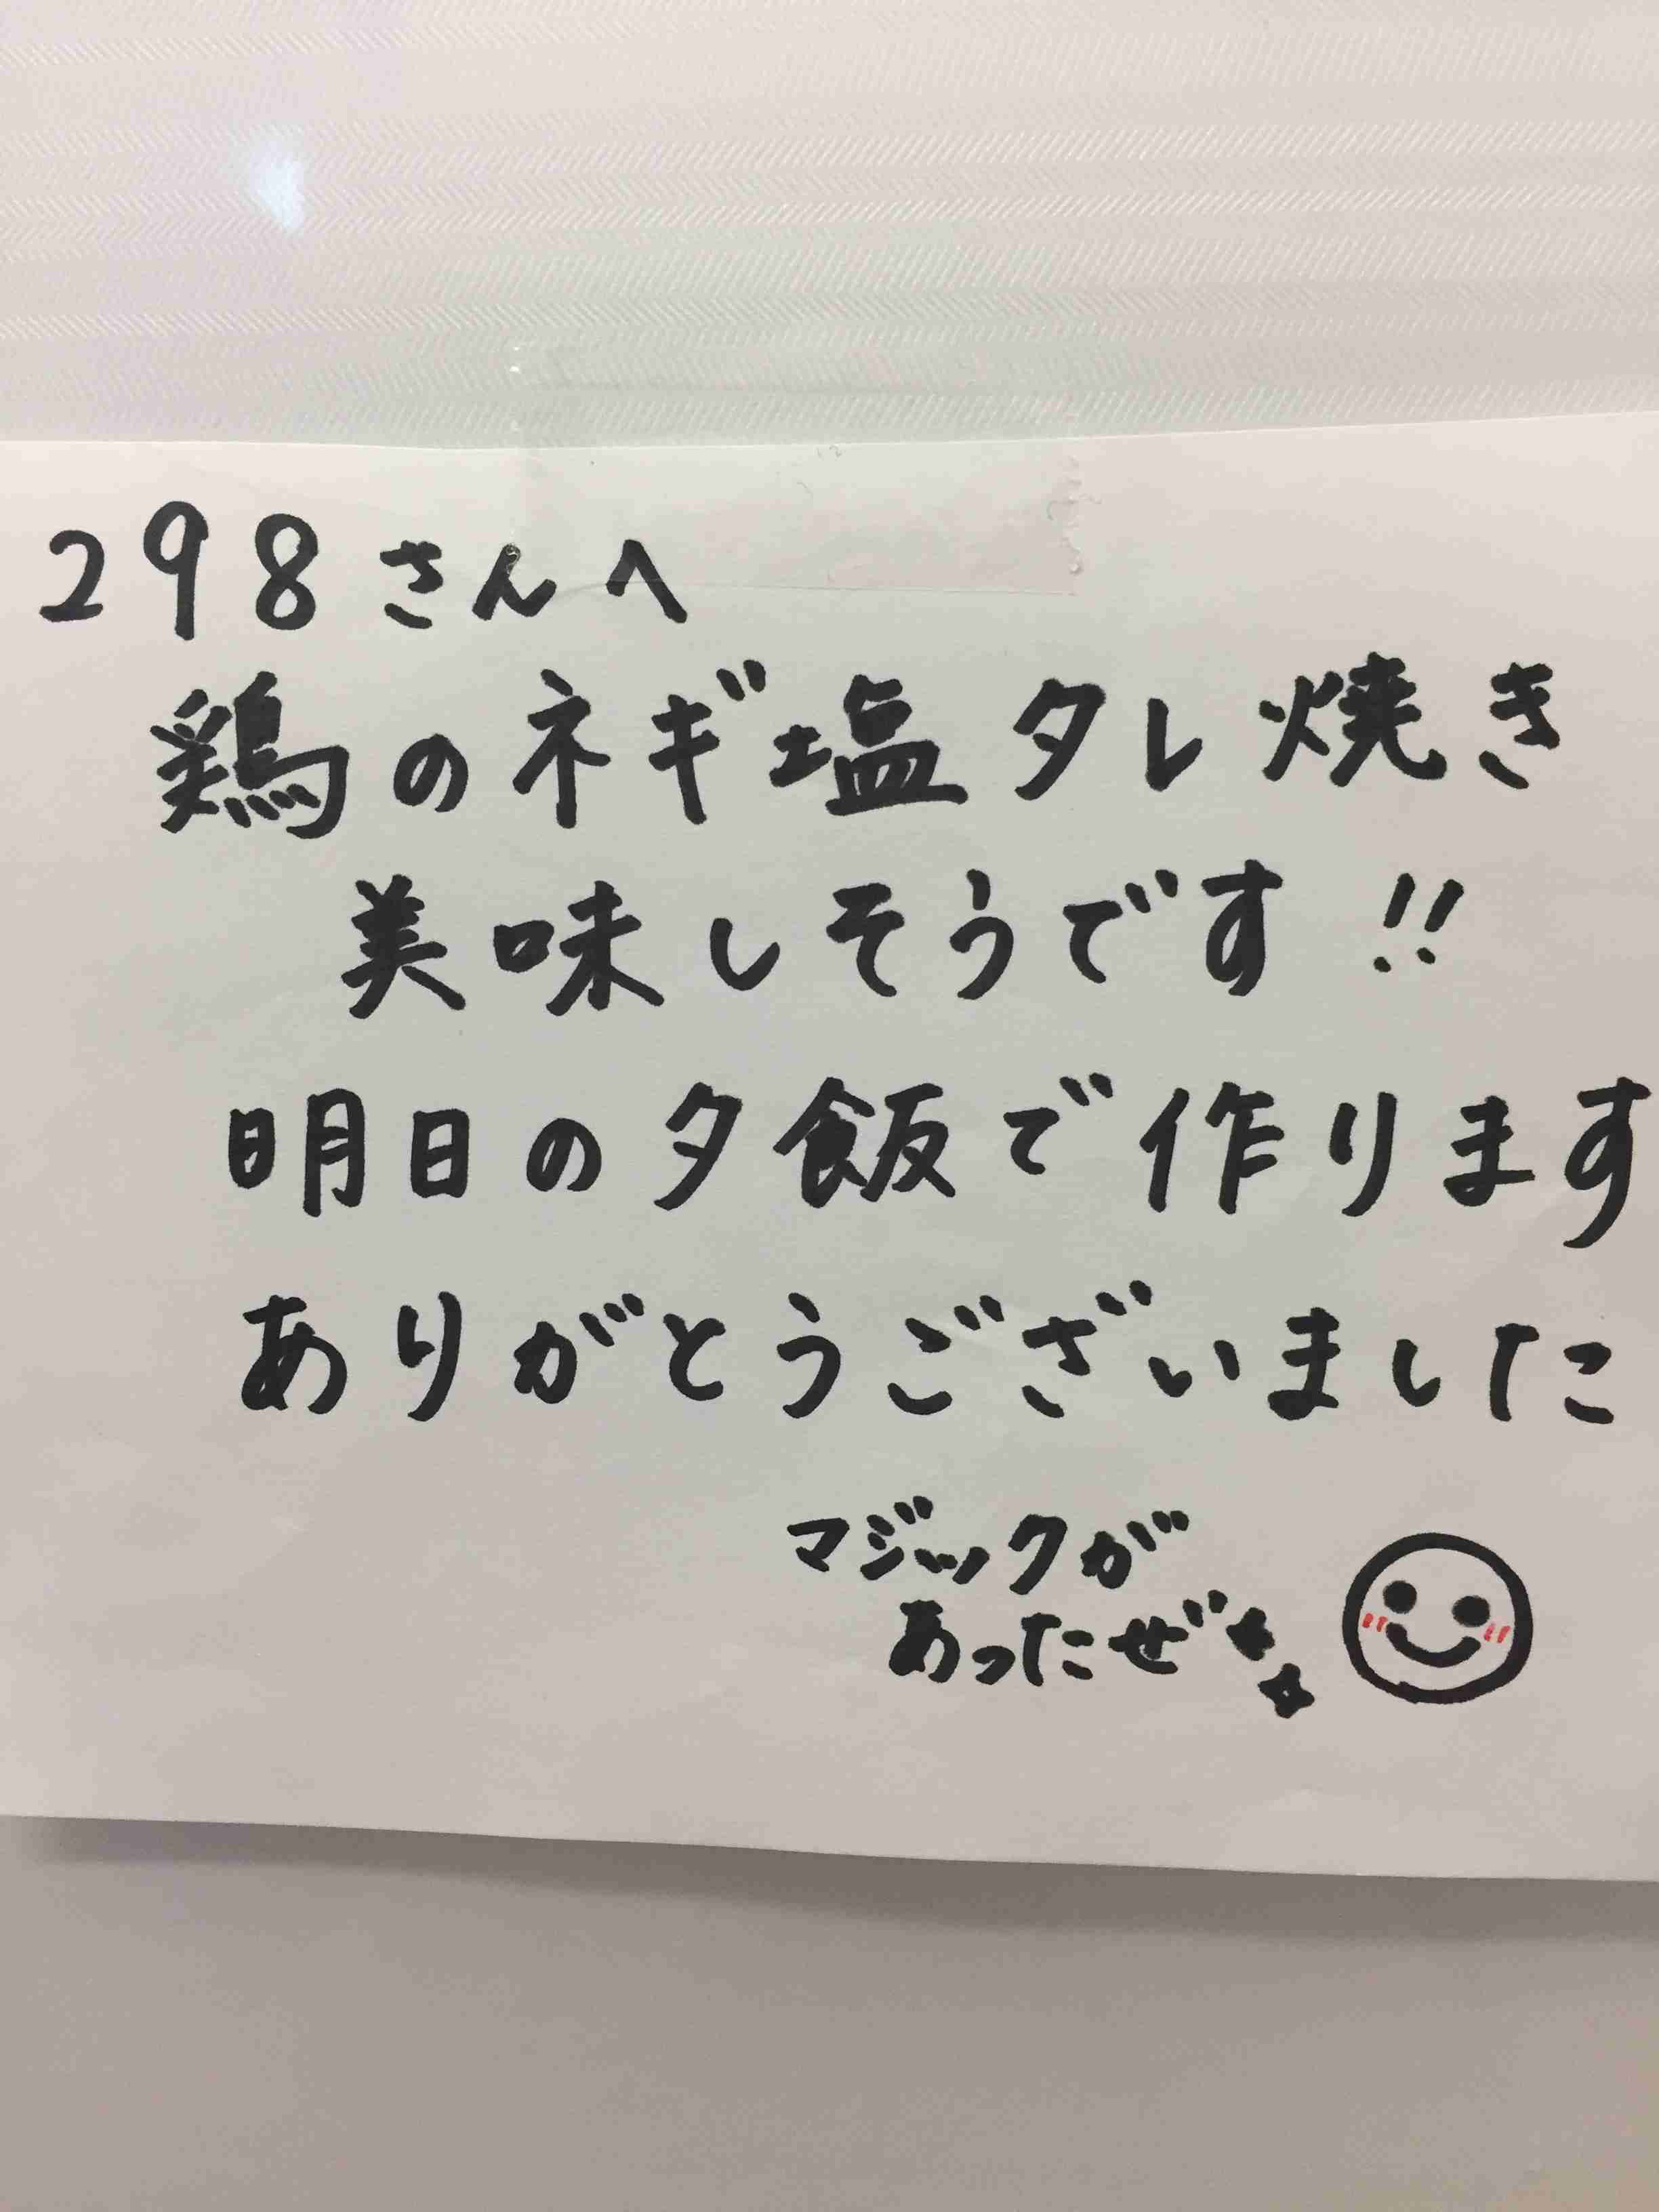 298さんへ
鶏のネギ塩タレ焼き
美味しそうです!!
明日の夕飯で作ります
ありがとうございました
マジックが
あったぜ